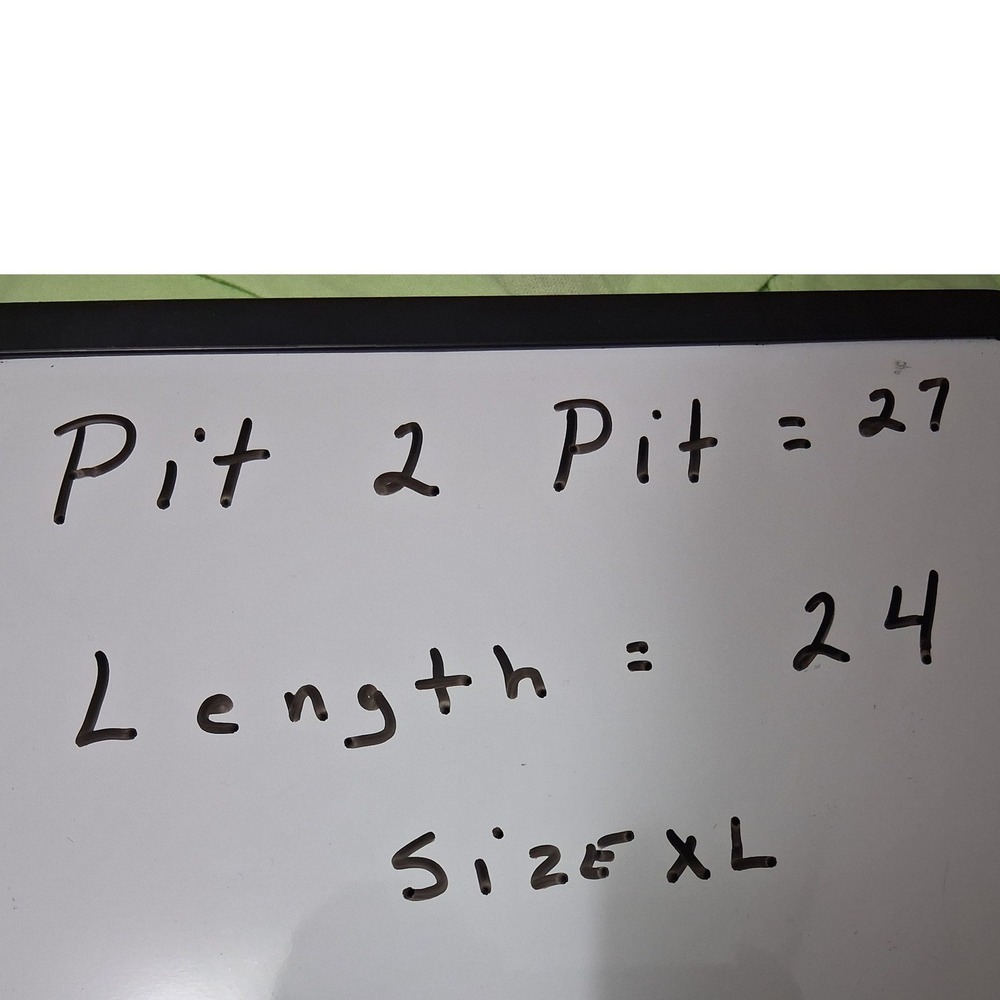 Pit 2 Pit = 27
Length = 24
SizE XL